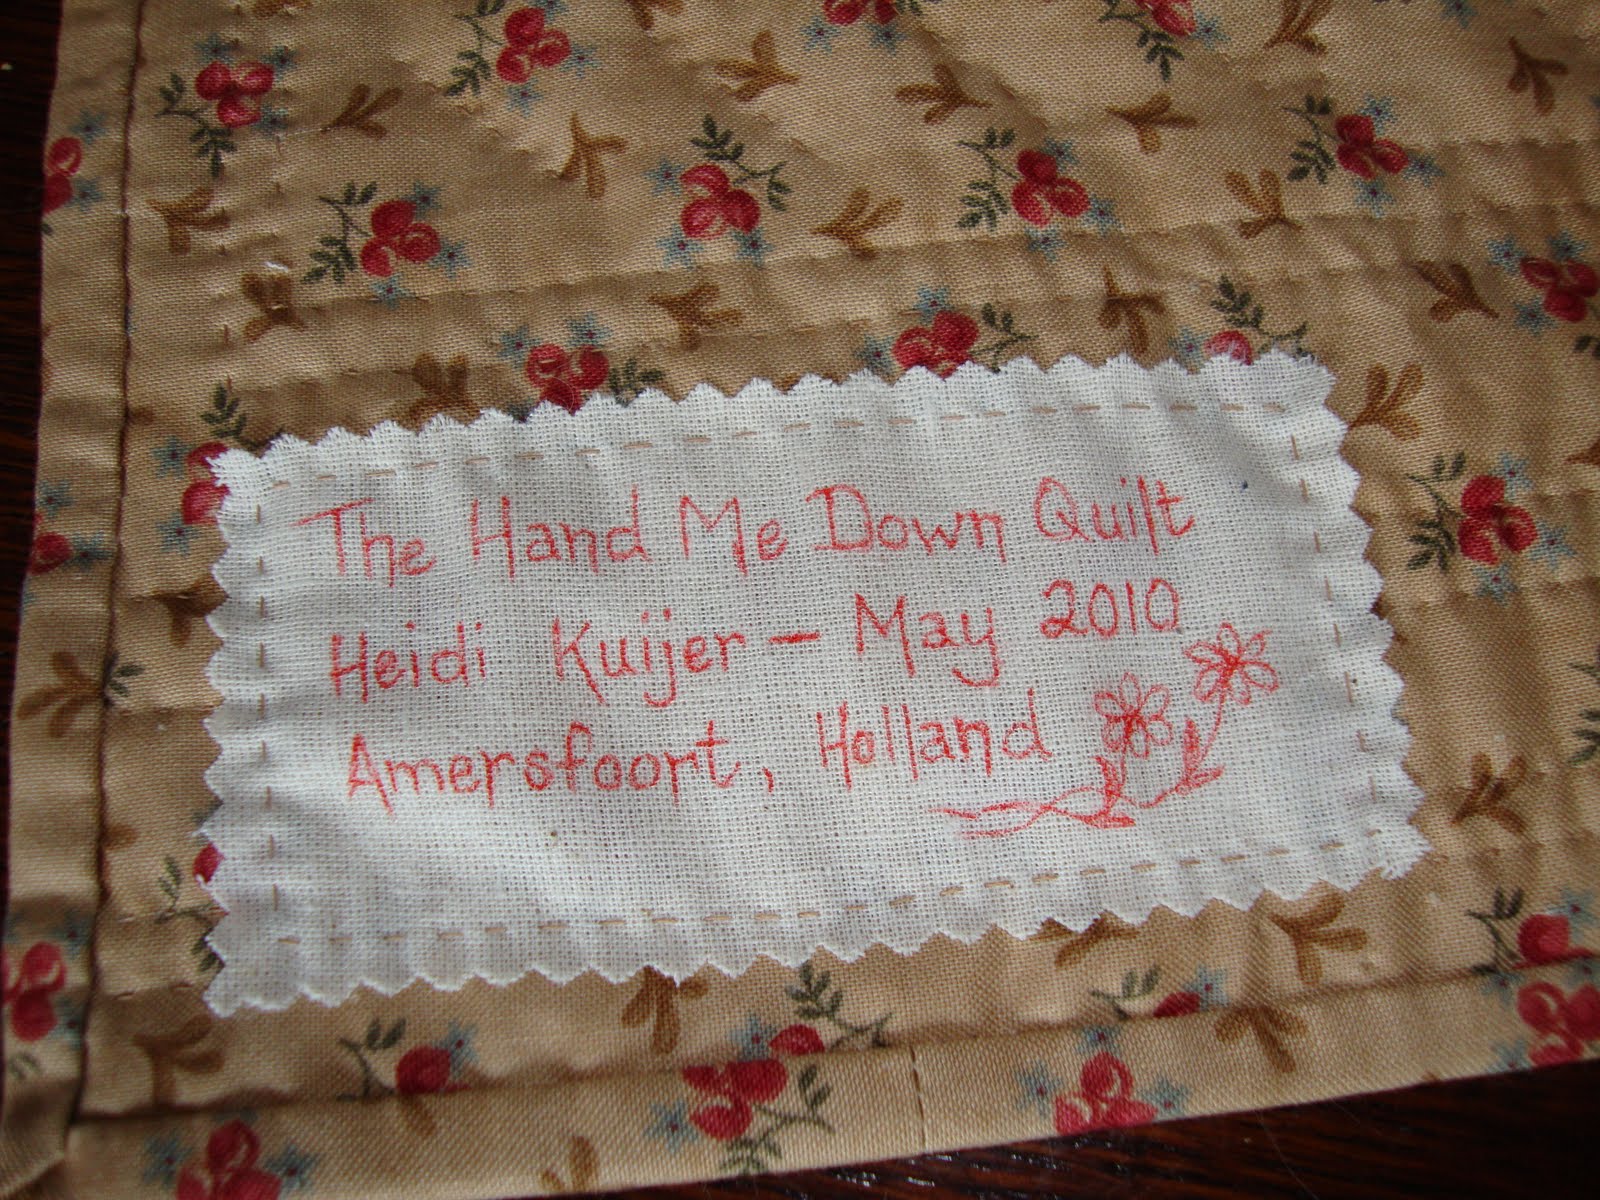 The Hand Me Down Quilt
Heidi Kuijer - May 2010
Amersfoort, Holland